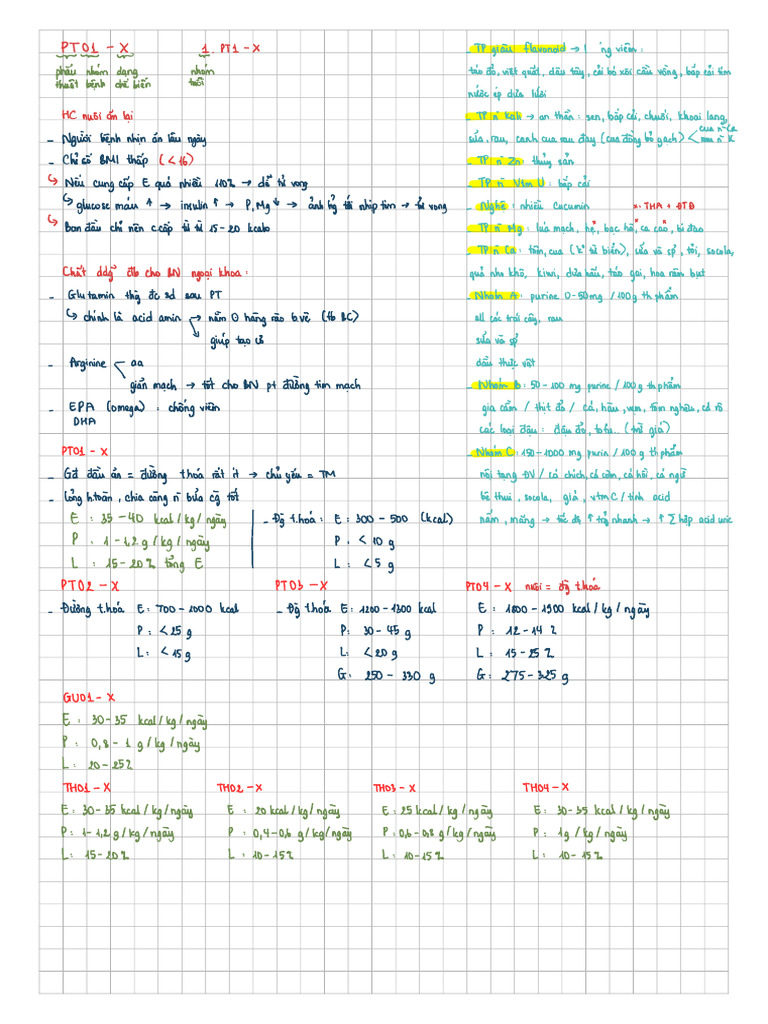 PT01 - X
phẫu nhóm dạng
thuật bệnh chế biến
1. PT1 - X
nhóm
tuổi
HC nuôi ăn lại
- Người bệnh nhịn ăn lâu ngày
- Chỉ số BMI thấp (<16)
↳ Nếu cung cấp E quá nhiều 110% → dễ tử vong
↳ glucose máu ↑ → insulin ↑ → P, Mg ↓ → ảnh hg tới nhịp tim → tử vong
↳ Ban đầu chỉ nên c.cấp từ từ 15-20 kcalo
Chất ddg đb cho BN ngoại khoa:
- Glutamin thg đc sd sau PT
↳ chính là acid amin → nằm ở hàng rào b.vệ (tb BC)
↘ giúp tạo
- Arginine
aa
giãn mạch → tốt cho BN pt đường tim mạch
- EPA (omega) : chống viêm
DHA
PT01 - X
- Gđ đầu ăn = đường t.hoá rất ít → chủ yếu = TM
- lỏng h.toàn, chia càng n bữa cg tốt
E : 35-40 kcal/kg/ngày
P : 1-1,2 g/kg/ngày
L : 15-20% tổng E
- Đg t.hoá : E : 300-500 (kcal)
P : <10 g
L : <5 g
PT02 - X
- Đường t.hoá E: 700-1000 kcal
P : <25 g
L : <15 g
PT03 - X
- Đg t.hoá E : 1200-1300 kcal
P: 30-45 g
L: <20 g
G: 250-330 g
PT04 - X nuôi = đg t.hoá
E : 1800-1900 kcal/kg/ngày
P : 12-14%
L : 15-25%
G : 275-325 g
GU01 - X
E : 30-35 kcal/kg/ngày
P : 0,8-1 g/kg/ngày
L : 20-25%
TH01 - X
E : 30-35 kcal/kg/ngày
P : 1-1,2 g/kg/ngày
L : 15-20%
TH02 - X
E : 20 kcal/kg/ngày
P : 0,4-0,6 g/kg/ngày
L : 10-15%
TH03 - X
E : 25 kcal/kg/ngày
P : 0,6-0,8 g/kg/ngày
L : 10-15%
TH04 - X
E : 30-35 kcal/kg/ngày
P : 1g/kg/ngày
L : 10-15%
- TP giàu flavonoid → ng viêm :
táo đỏ, việt quất, dâu tây, cải bó xôi cầu vồng, bắp cải tím
nước ép dứa
- TP n Kali → an thần : sen, bắp cải, chuối, khoai lang,
sữa, rau, canh cua rau đay (cua đồng bỏ gạch) < cua n Ca
rau n K
- TP n Zn : thuỷ sản
- TP n Vtm U : bắp cải
- Nghệ : nhiều Cucumin x. THA + ĐTĐ
- TP n Mg : lúa mạch, hẹ, bạc hà, ca cao, bí đao
- TP n Ca : tôm, cua (k° từ biển), sữa và sp, tỏi, socola,
quả nho khô, kiwi, dưa hấu, táo gai, hoa râm bụt
- Nhóm A : purine 0-50mg / 100g th.phẩm
all các trái cây, rau
sữa và sp
dầu thực vật
- Nhóm B : 50-100 mg purine / 100g th.phẩm
gia cầm / thịt đỏ / cá, hàu, vẹm, tôm nghêu, cá rô
các loại đậu : đậu đỏ, tofu.. (trừ giá)
- Nhóm C : 150-1000 mg purin / 100g th.phẩm
nội tạng ĐV / cá chích, cá cơm, cá hồi, cá ngừ
bê thui, socola, giá, vtm C / tính acid
nấm, măng → tốc độ ↑ trg nhanh → ↑ ∑ hợp acid uric